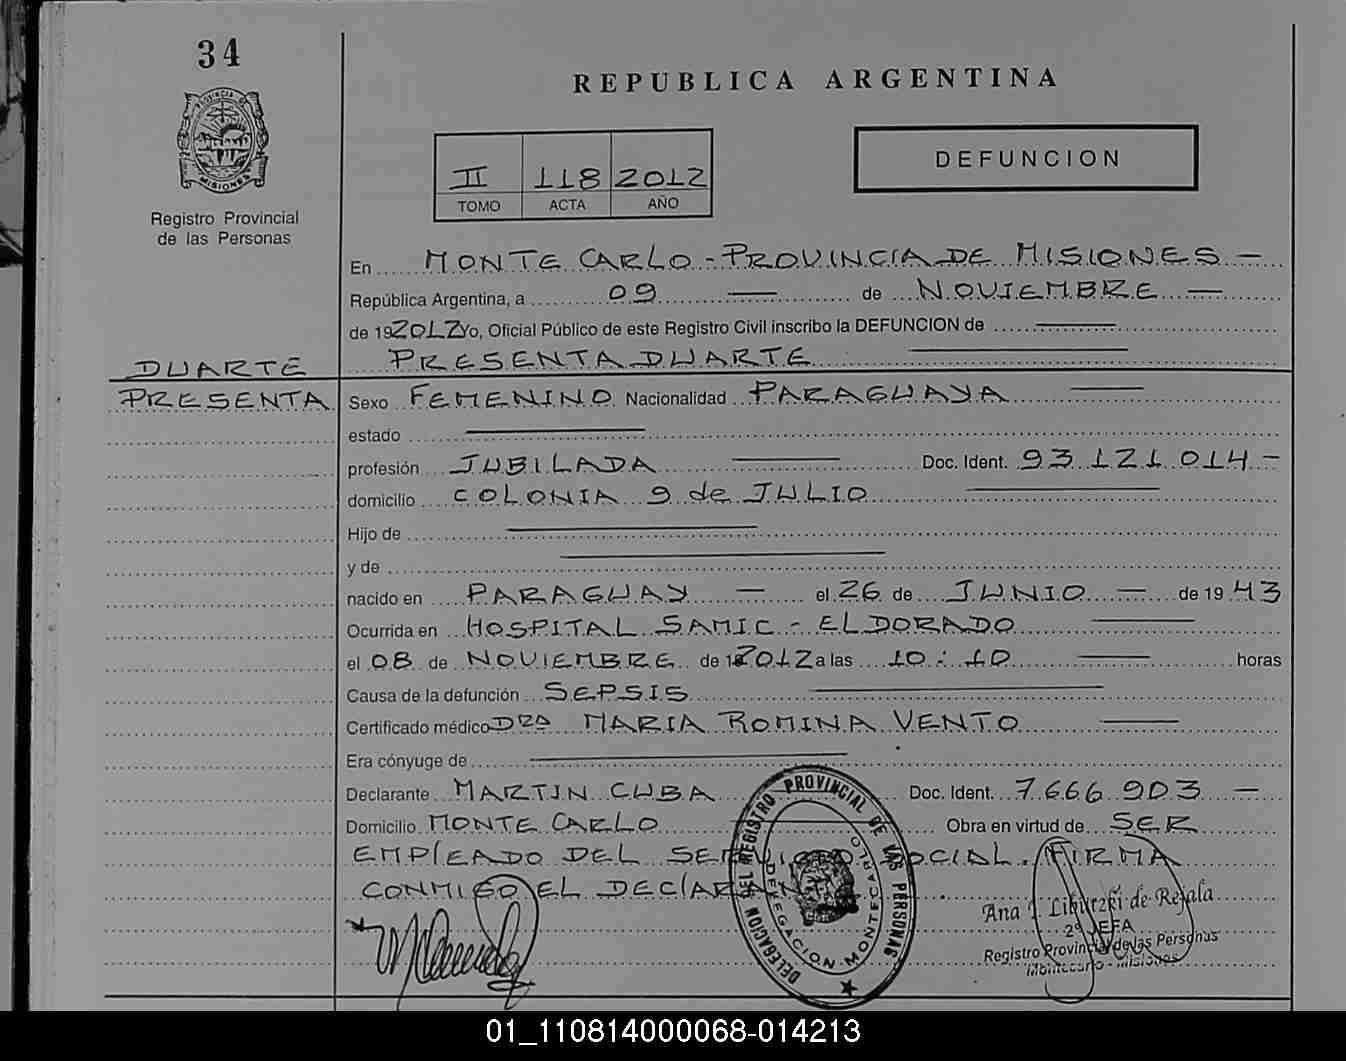 34
REPUBLICA ARGENTINA
PROVINCIA DE
MISIONES
Registro Provincial
de las Personas
II 118 2012
TOMO ACTA AÑO
DEFUNCION
En MONTE CARLO - PROVINCIA DE MISIONES -
República Argentina, a 09 — de NOVIEMBRE —
de 192012 Yo, Oficial Público de este Registro Civil inscribo la DEFUNCION de —
PRESENTA DUARTE —
DUARTE
PRESENTA
Sexo FEMENINO Nacionalidad PARAGUAYA —
estado —
profesión JUBILADA — Doc. Ident. 93.121.014 -
domicilio COLONIA 9 de JULIO —
Hijo de —
y de —
nacido en PARAGUAY — el 26 de JUNIO — de 19 43
Ocurrida en HOSPITAL SAMIC - ELDORADO —
el 08 de NOVIEMBRE de 2012 a las 10:10 — horas
Causa de la defunción SEPSIS —
Certificado médico Dra MARIA ROMINA VENTO —
Era cónyuge de —
Declarante MARTIN CUBA Doc. Ident. 7.666.903 —
Domicilio MONTE CARLO — Obra en virtud de SER
EMPLEADO DEL SERVICIO SOCIAL. FIRMA
CONMIGO EL DECLARANTE
DELEGACION DEL REGISTRO PROVINCIAL DE LAS PERSONAS
DELEGACION MONTECARLO
Ana Libutzki de Rejala
2º JEFA
Registro Provincial de las Personas
Montecarlo - Misiones
01_110814000068-014213